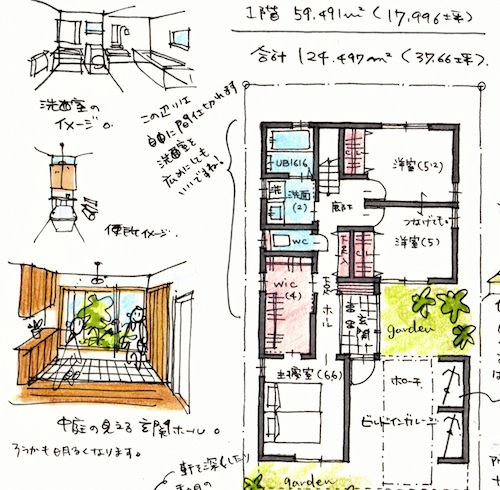 1階 59.491m²(17.996坪)
合計 124.497m²(37.66坪).
洗面室の
イメージ。
この辺りは
自由に間仕切れます
洗面室を
広めにしても
いいですね!
便所イメージ.
中庭の見える玄関ホール。
ろうかも明るくなります。
軒を深くしたり
UB1616
洗面
(2)
WC
WIC
(4)
主寝室(6.6)
廊下
ホール
玄関
洋室(5.2)
つなげても。
洋室(5)
garden
ポーチ
ビルドインガレージ
garden